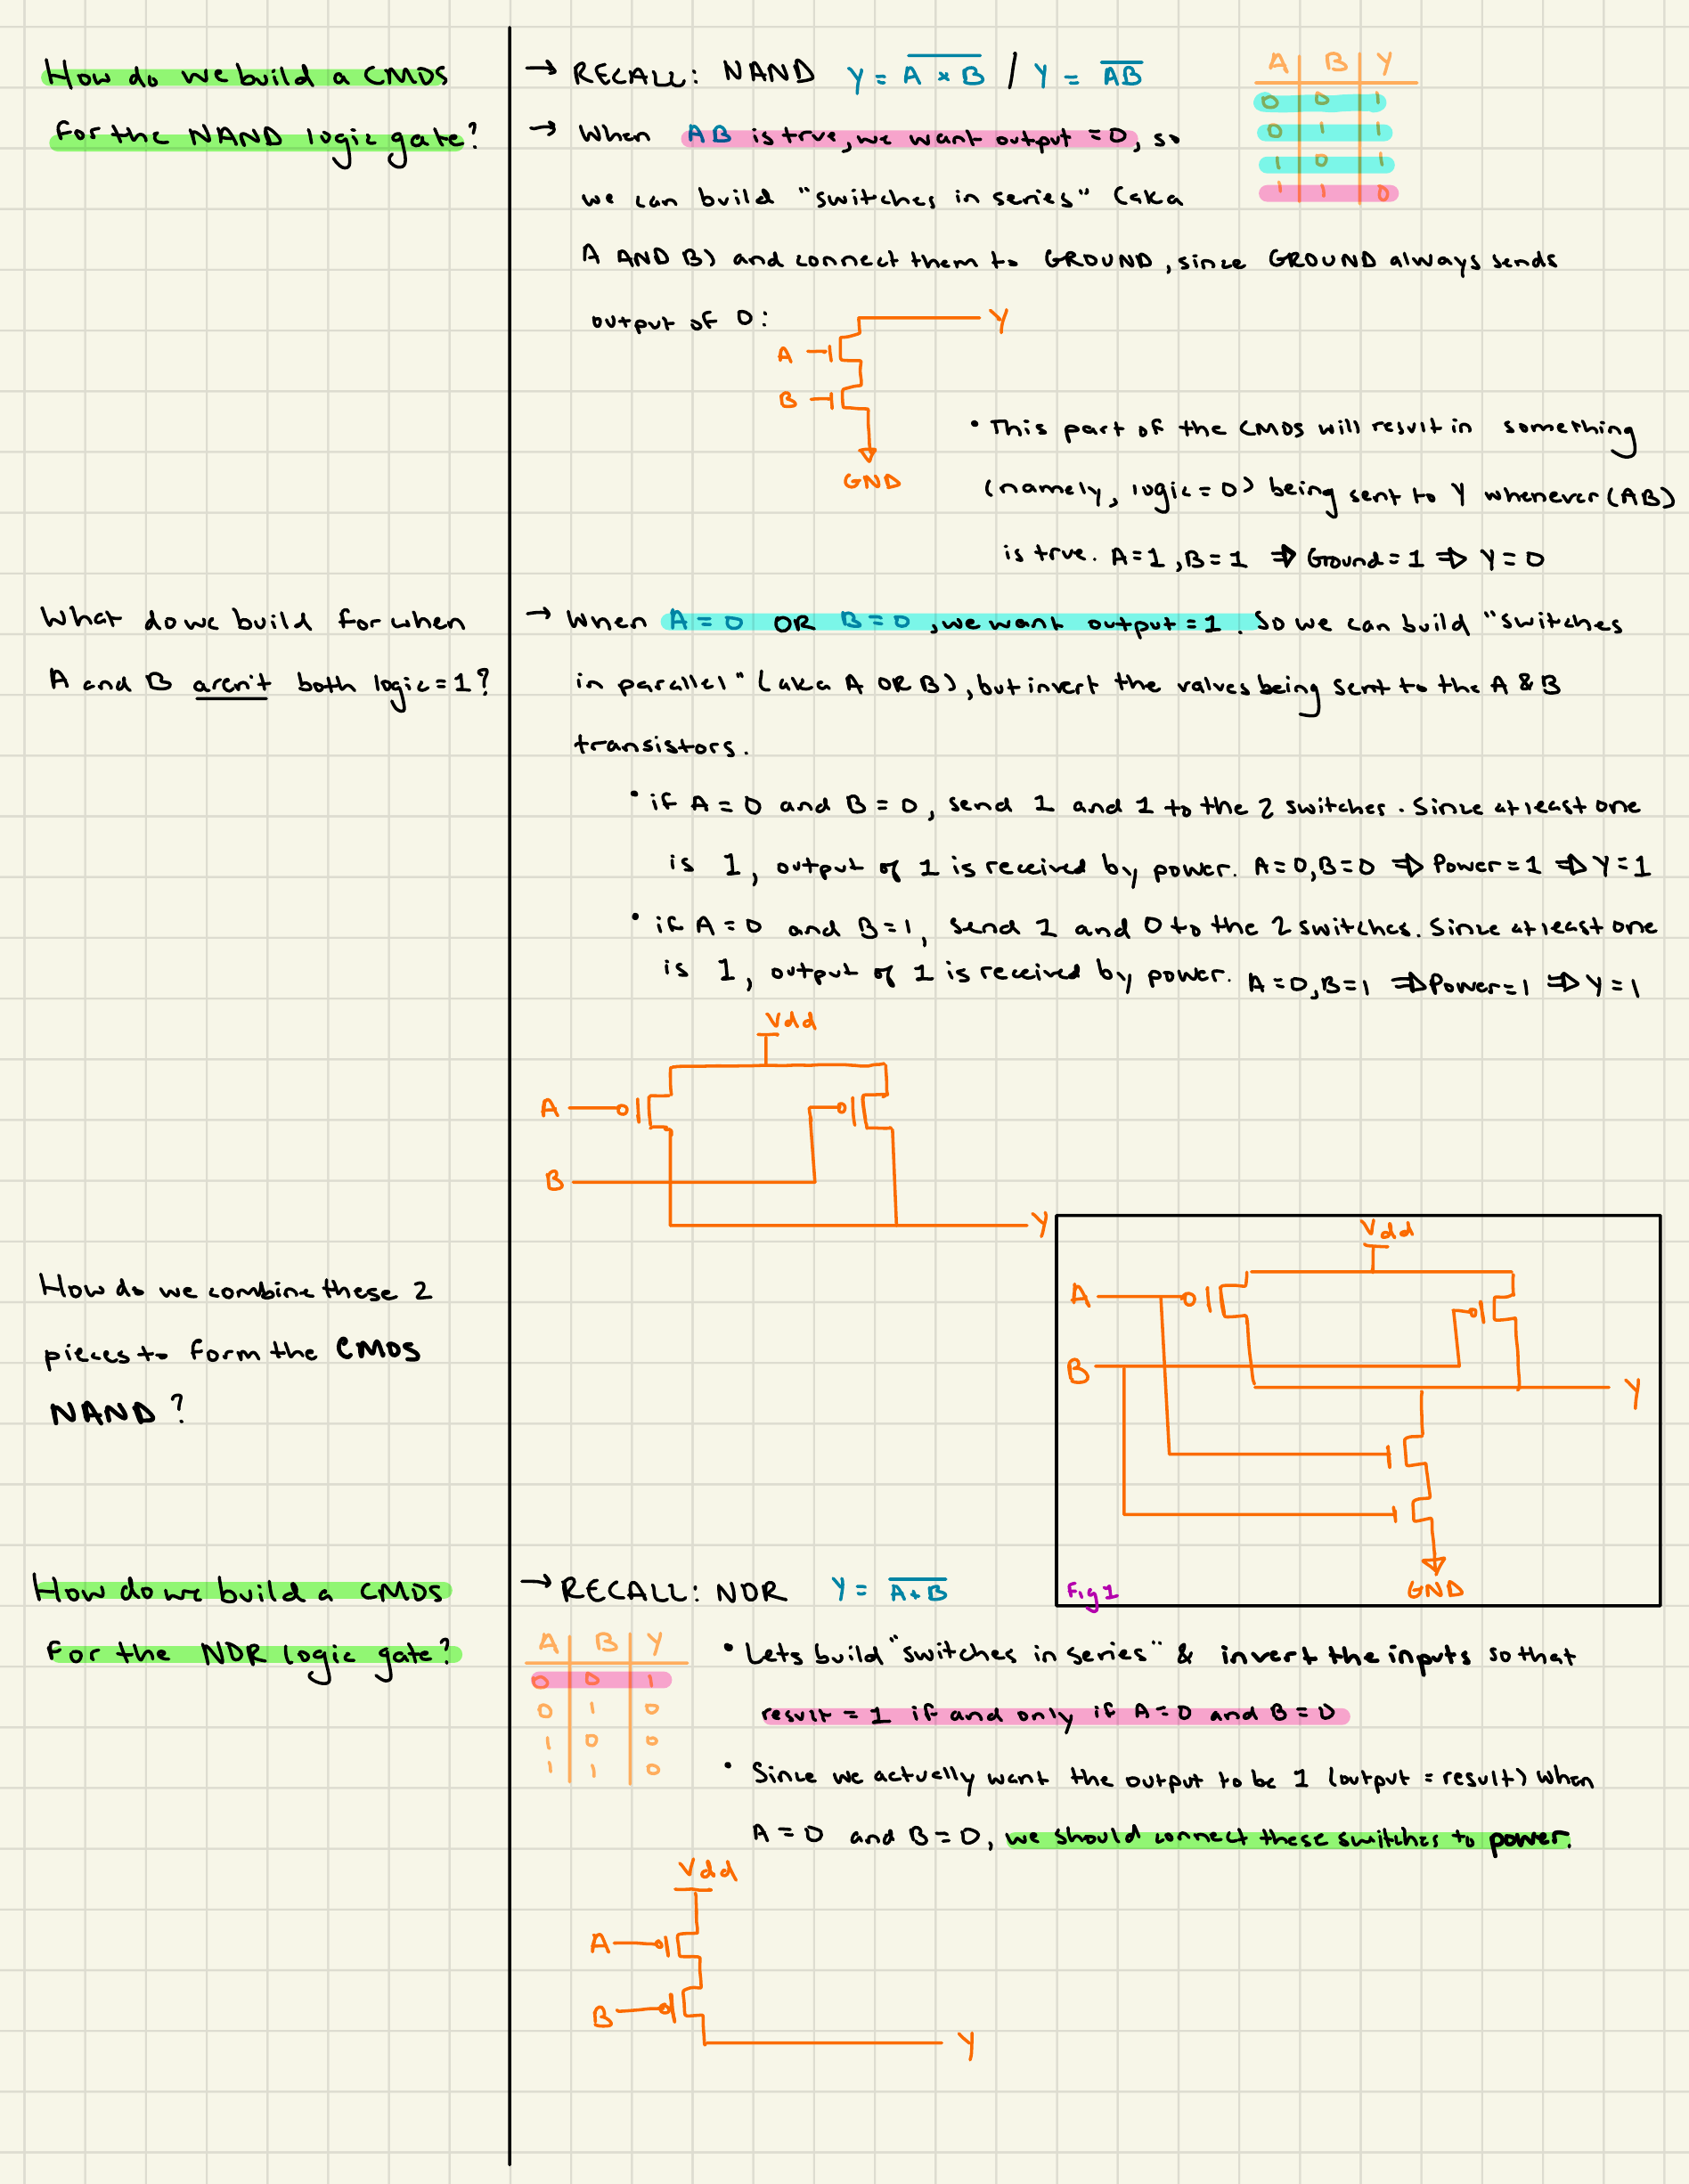 How do we build a CMOS
for the NAND logic gate?
→ RECALL: NAND Y = \overline{A × B} / Y = \overline{AB}
→ When AB is true, we want output = 0, so
we can build "switches in series" (aka
A AND B) and connect them to GROUND, since GROUND always sends
output of 0:
A B Y
0 0 1
0 1 1
1 0 1
1 1 0
Y
A
B
GND
• This part of the CMOS will result in something
(namely, logic = 0) being sent to Y whenever (AB)
is true. A=1, B=1 ⇒ Ground = 1 ⇒ Y = 0
What do we build for when
A and B aren't both logic=1?
→ When A = 0 OR B = 0, we want output = 1. So we can build "switches
in parallel" (aka A OR B), but invert the values being sent to the A & B
transistors.
• if A = 0 and B = 0, send 1 and 1 to the 2 switches. Since at least one
is 1, output of 1 is received by power. A=0, B=0 ⇒ Power = 1 ⇒ Y = 1
• if A = 0 and B = 1, send 1 and 0 to the 2 switches. Since at least one
is 1, output of 1 is received by power. A = 0, B = 1 ⇒ Power = 1 ⇒ Y = 1
Vdd
A
B
Y
How do we combine these 2
pieces to form the CMOS
NAND?
Vdd
A
B
Y
GND
Fig 1
How do we build a CMOS
for the NOR logic gate?
→ RECALL: NOR Y = \overline{A + B}
A B Y
0 0 1
0 1 0
1 0 0
1 1 0
• Lets build "switches in series" & invert the inputs so that
result = 1 if and only if A = 0 and B = 0
• Since we actually want the output to be 1 (output = result) when
A = 0 and B = 0, we should connect these switches to power.
Vdd
A
B
Y